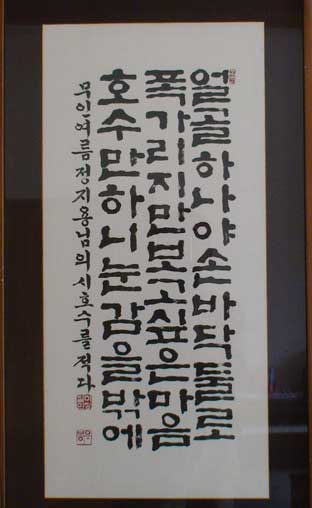 얼골하나야손바닥둘로
폭가리지만보고싶은마음
호수만하니눈감을밖에
무인여름정지용님의시호수를적다